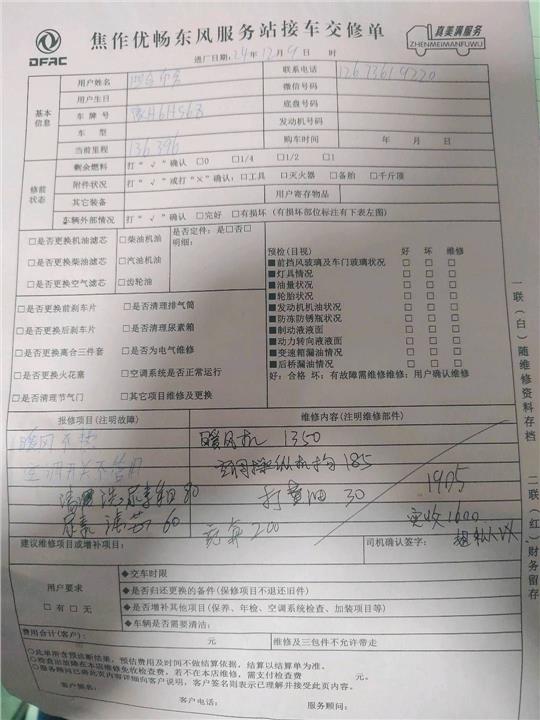 DFAC
焦作优畅东风服务站接车交修单
真美满服务
ZHENMEIMANFUWU
进厂日期: 24 年 12 月 9 日 时
基本信息
用户姓名
联系电话
用户生日
微信号码
车 牌 号
底盘号码
车 型
发动机号码
当前里程 136396
购车时间 年 月 日
修前状态
剩余燃料 打“√”确认 □0 □1/4 □1/2 □1
附件状况 打“√”或打“×”确认:□工具 □灭火器 □备胎 □千斤顶
其它装备
用户寄存物品
车辆外部情况 打“√”确认 □完好 □有损坏(有损坏部位标注有下表左图)
□是否更换机油滤芯 □柴油机油
□是否更换柴油滤芯 □汽油机油
□是否更换空气滤芯 □齿轮油
是否定件: 是□否□
明细:
□是否更换前刹车片 □是否清理排气筒
□是否更换后刹车片 □是否清理尿素箱
□是否更换离合三件套 □是否为电气维修
□是否更换火花塞 □空调系统是否正常运行
□是否清理节气门 □其它项目维修及更换
预检(目视) 好 坏 维修
■前挡风玻璃及车门玻璃状况 □ □ □
■灯具情况 □ □ □
■油量状况 □ □ □
■轮胎状况 □ □ □
■发动机机油状况 □ □ □
■防冻防锈瓶状况 □ □ □
■制动液液面 □ □ □
■动力转向液液面 □ □ □
■变速箱漏油情况 □ □ □
■后桥漏油情况 □ □ □
好:合格 坏:有故障需维修维修:用户确认维修
报修项目(注明故障)
维修内容(注明维修部件)
暖风不热
暖风机 1350
空调开关不管用
空调操纵机构 185
尿素 80
打黄油 30
1905
尿素滤芯 60
200
实收1600
建议维修项目或增补项目:
司机确认签字:
用户要求
□有 □无
◆交车时限
◆是否归还更换的备件(保修项目不退还旧件)
◆是否增补其他项目(保养、年检、空调系统检查、加装项目等)
◆车辆是否需要清洁:
费用合计(客户): 元
维修及三包件不允许带走
○此单所含预诊断结果,预估费用及时间不做结算依据,结算以结算单为准。
○检查出故障在本店维修免收检查费,若不在本店维修,需支付检查费 元。
○服务顾问已将此页内容详细向客户说明,客户签名则表示已理解并接受此页内容。
客户签名:
客户电话:
服务顾问:
一联(白)随维修资料存档
二联(红)财务留存